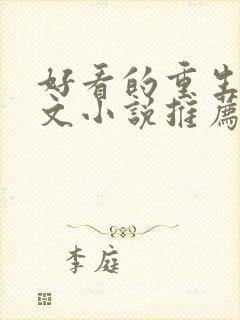 好看的重生
文小説推薦
李庭